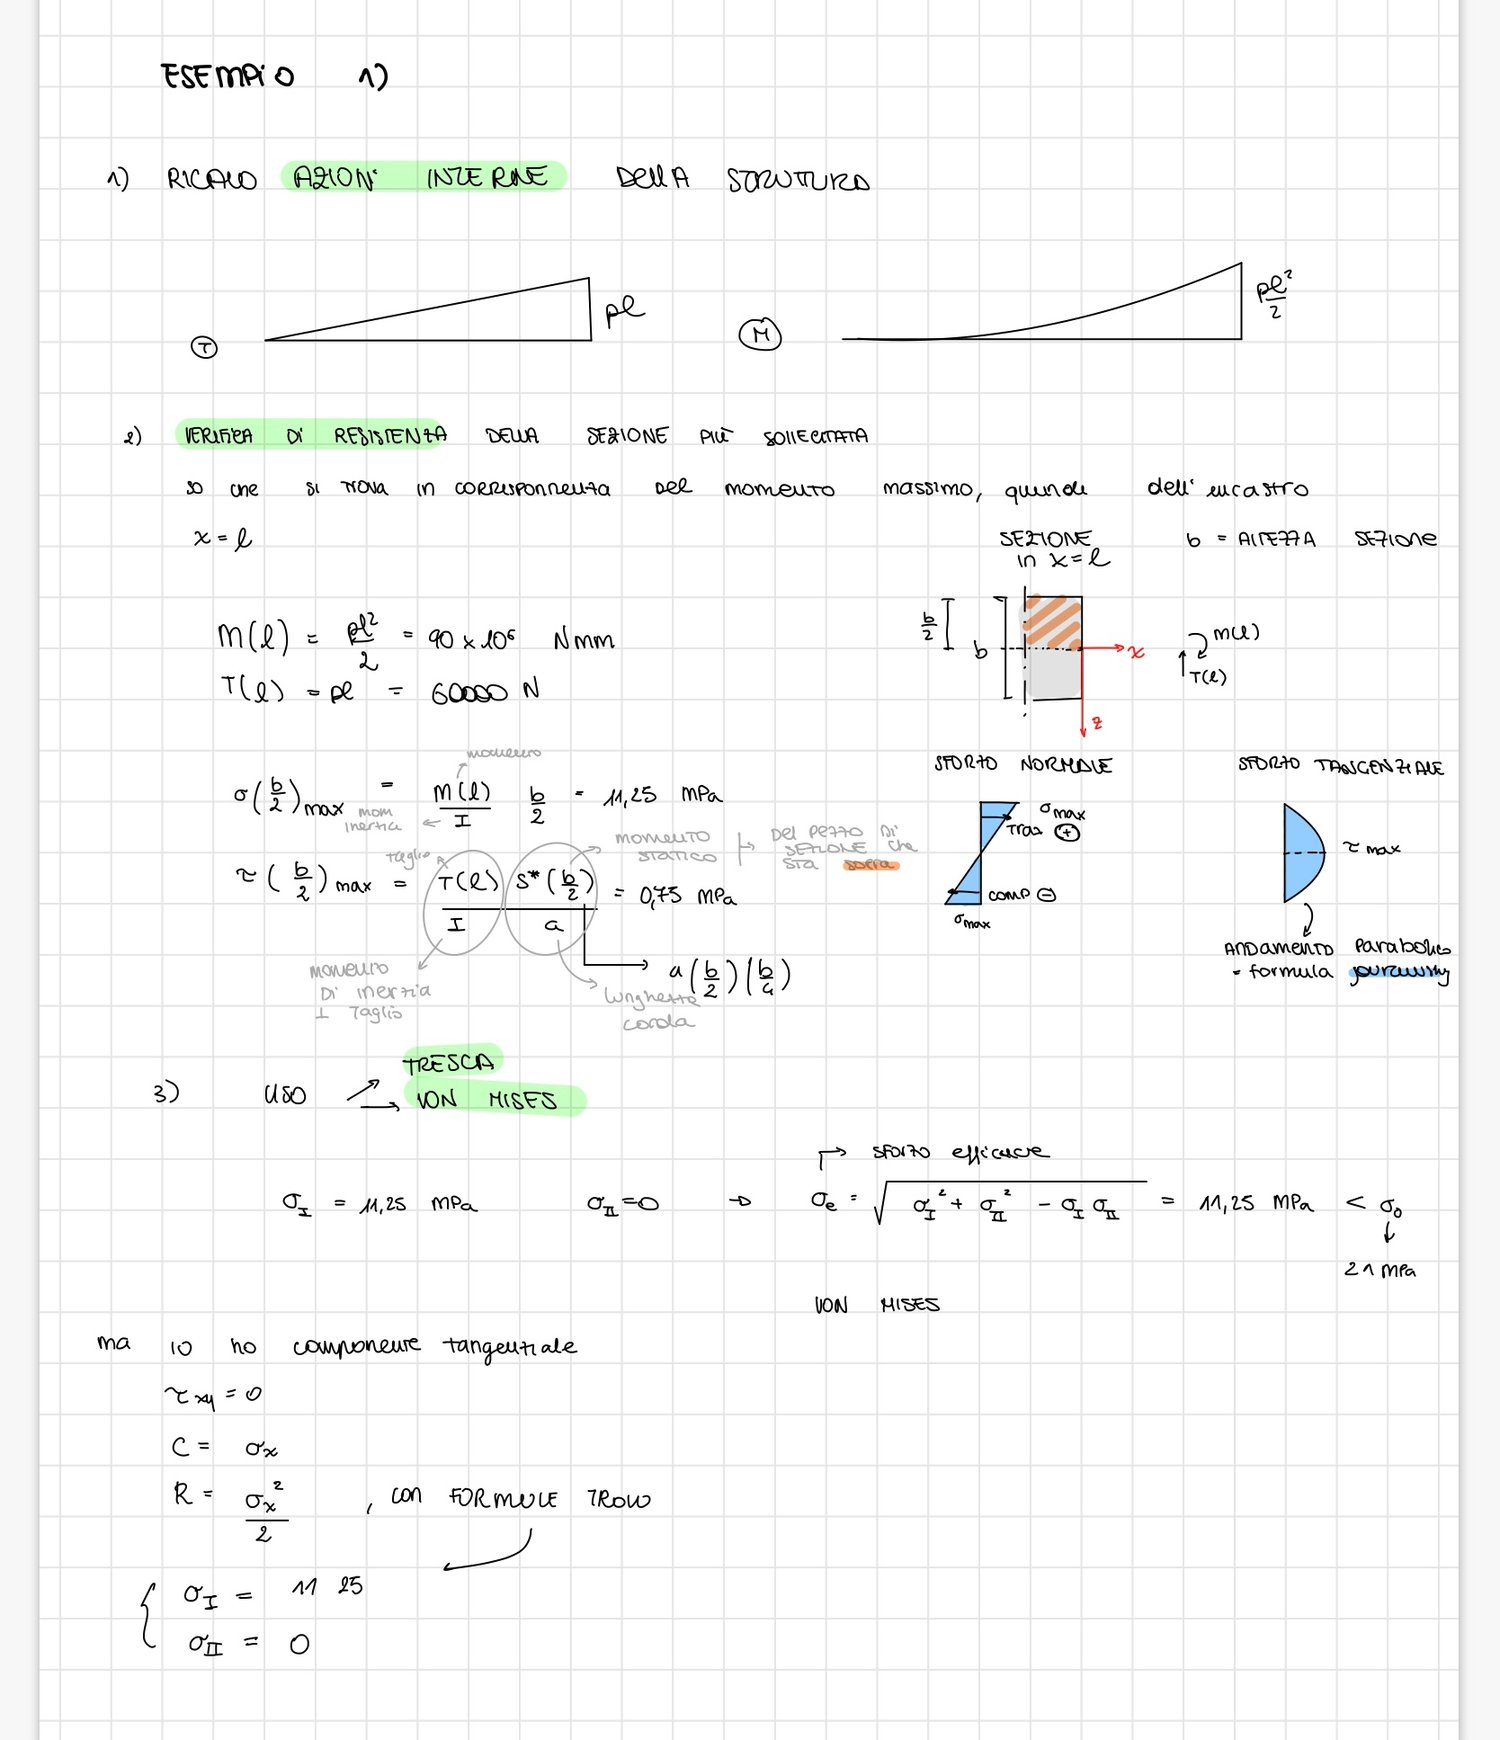 ESEMPIO 1)
1) RICALO AZIONI INTERNE DELLA STRUTTURA
T
pl
M
pl²/2
2) VERIFICA DI RESISTENZA DELLA SEZIONE PIÙ SOLLECITATA
so che si trova in corrisponnenza del momento massimo, quindi dell' incastro
x = l
SEZIONE in x = l
b = ALTEZZA SEZIONE
b/2
b
x
z
M(l)
T(l)
M(l) = pl²/2 = 90 x 10⁶ Nmm
T(l) = pl = 60000 N
momento
σ(b/2)max = M(l)/I b/2 = 11,25 MPa
mom inerzia
taglio
τ(b/2)max = T(l)/I S*(b/2)/a = 0,75 MPa
MOMENTO STATICO
DEL PEZZO DI SEZIONE che STA sopra
a(b/2)(b/4)
MOMENTO DI inerzia ⊥ Taglio
lunghezza corda
SFORZO NORMALE
σmax
Traz ⊕
COMP ⊖
σmax
SFORZO TANGENZIALE
τ max
ANDAMENTO Parabolico
- formula jourawsky
3) USO TRESCA
VON MISES
sforzo efficace
σI = 11,25 MPa σII = 0 → σe = √(σI² + σII² - σI σII) = 11,25 MPa < σ0
21 MPa
VON MISES
ma io ho componente tangenziale
τxy = 0
C = σx
R = σx²/2 , con FORMULE TROVO
σI = 11 25
σII = 0